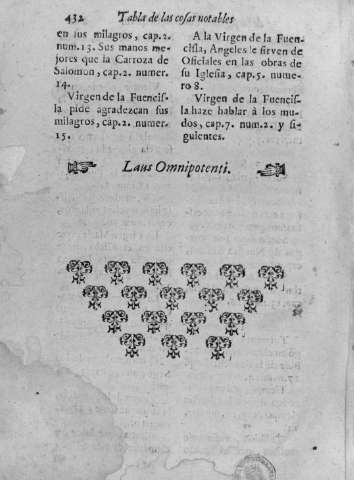 432 Tabla de las cosas notables
en sus milagros, cap. 2.
num. 13. Sus manos me-
jores que la Carroza de
Salomon, cap. 2. numer.
14.
Virgen de la Fuencis-
la pide agradezcan sus
milagros, cap. 2. numer.
15.
A la Virgen de la Fuen-
cisla, Angeles le sirven de
Oficiales en las obras de
su Iglesia, cap. 5. nume-
ro 8.
Virgen de la Fuencis-
la haze hablar à los mu-
dos, cap. 7. num. 2. y si-
guientes.
Laus Omnipotenti.